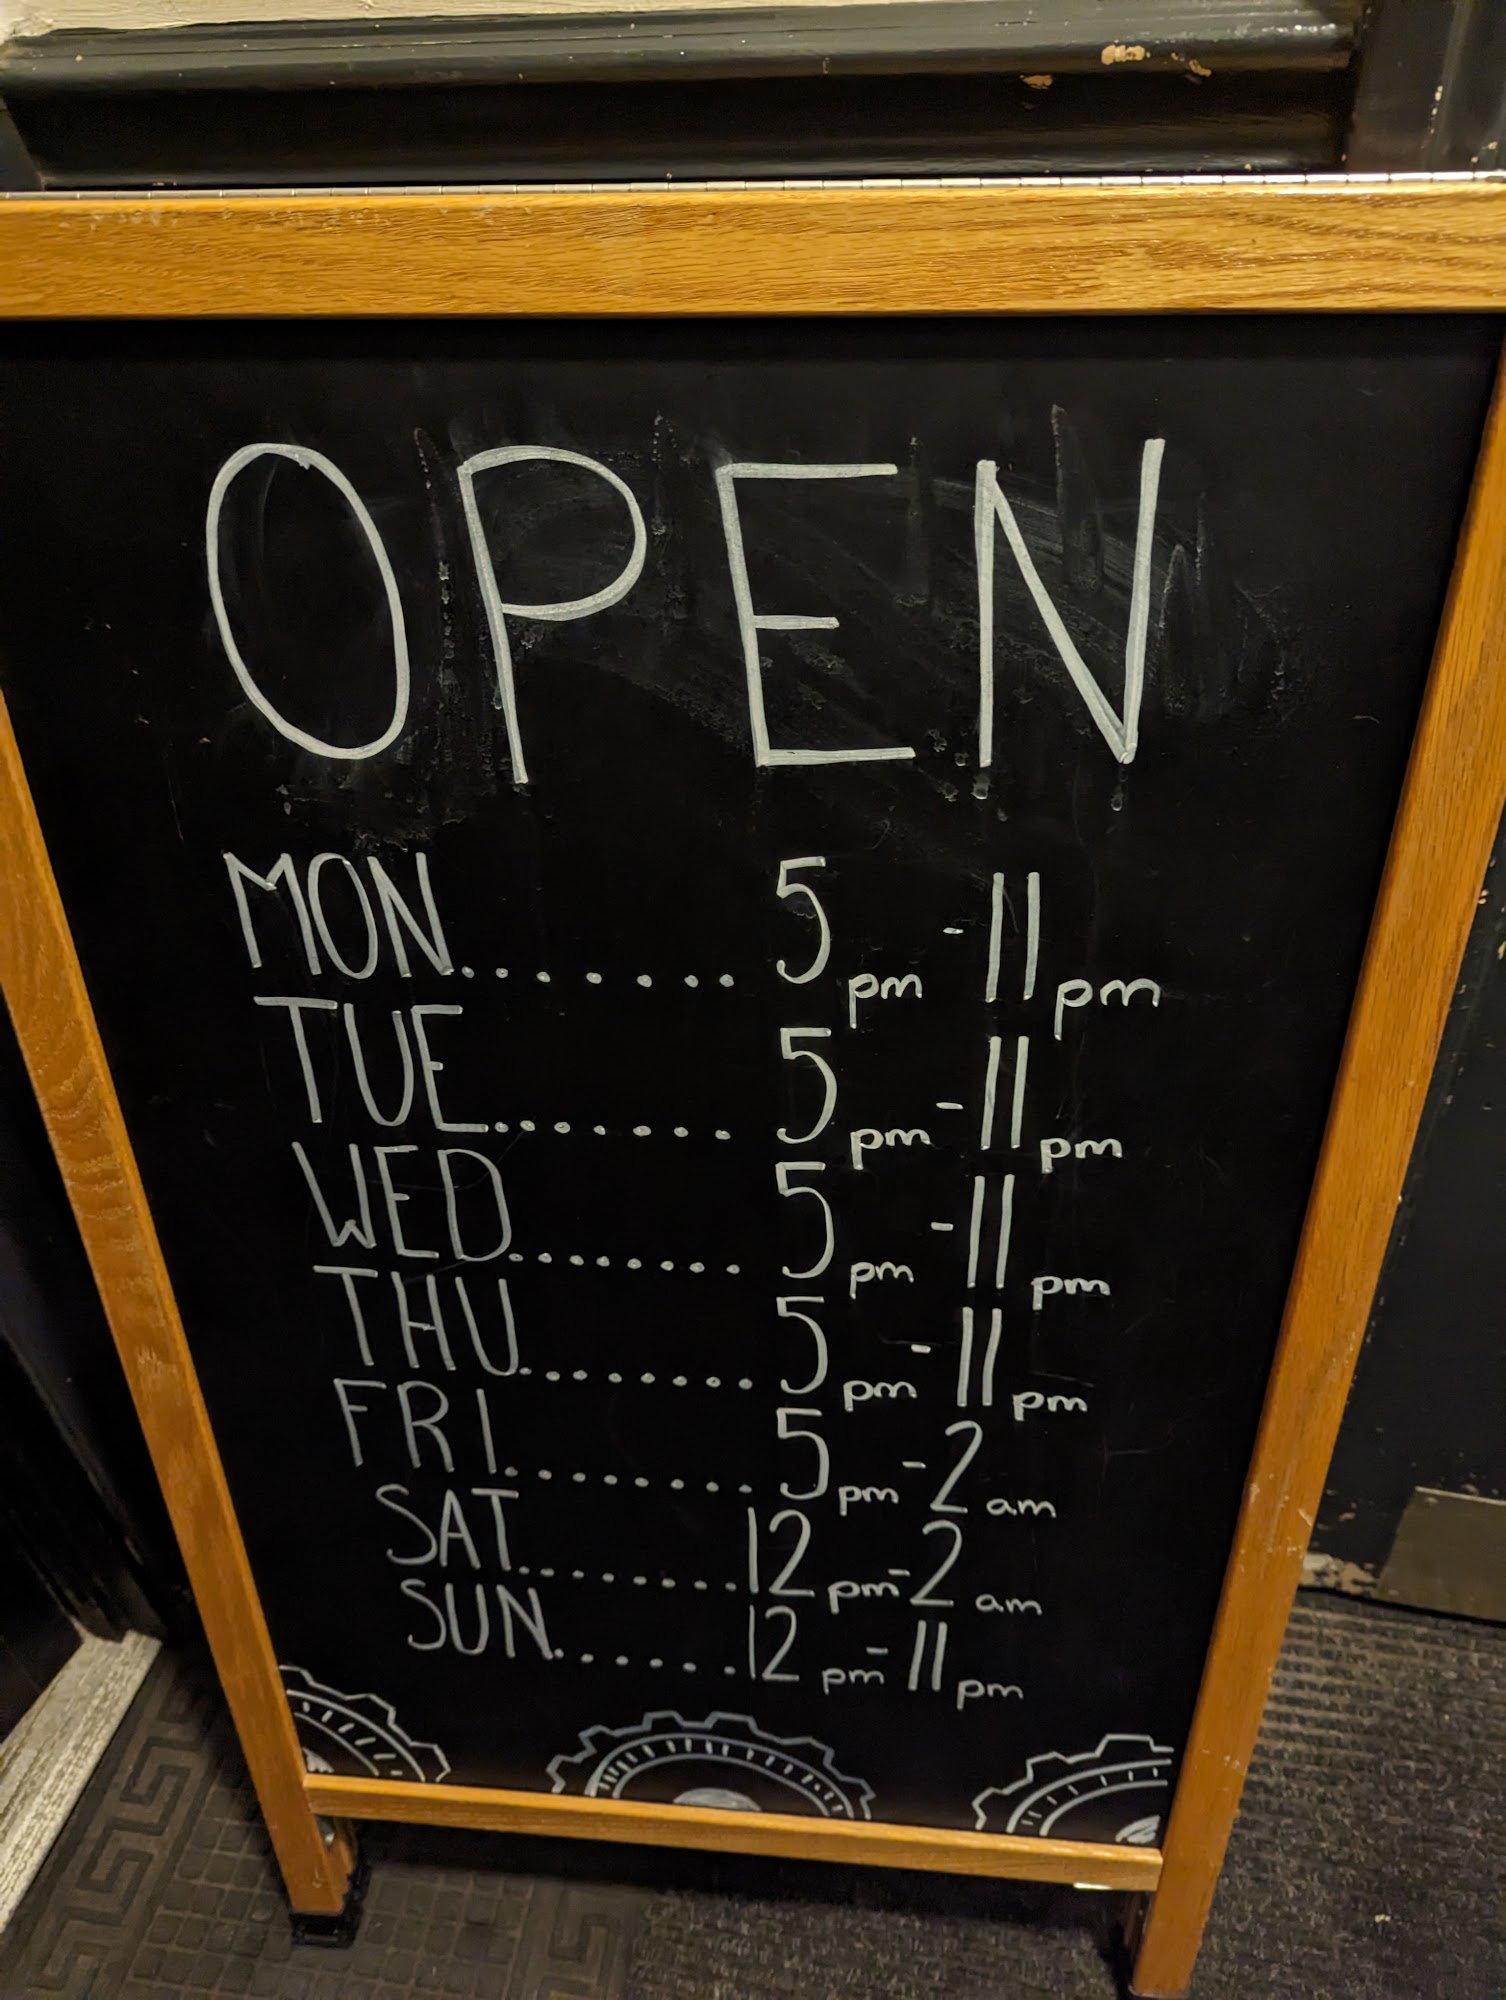 OPEN
MON........ 5pm - 11pm
TUE....... 5pm - 11pm
WED........ 5pm - 11pm
THU......... 5pm - 11pm
FRI......... 5pm - 2am
SAT.........12pm - 2am
SUN.......12pm - 11pm